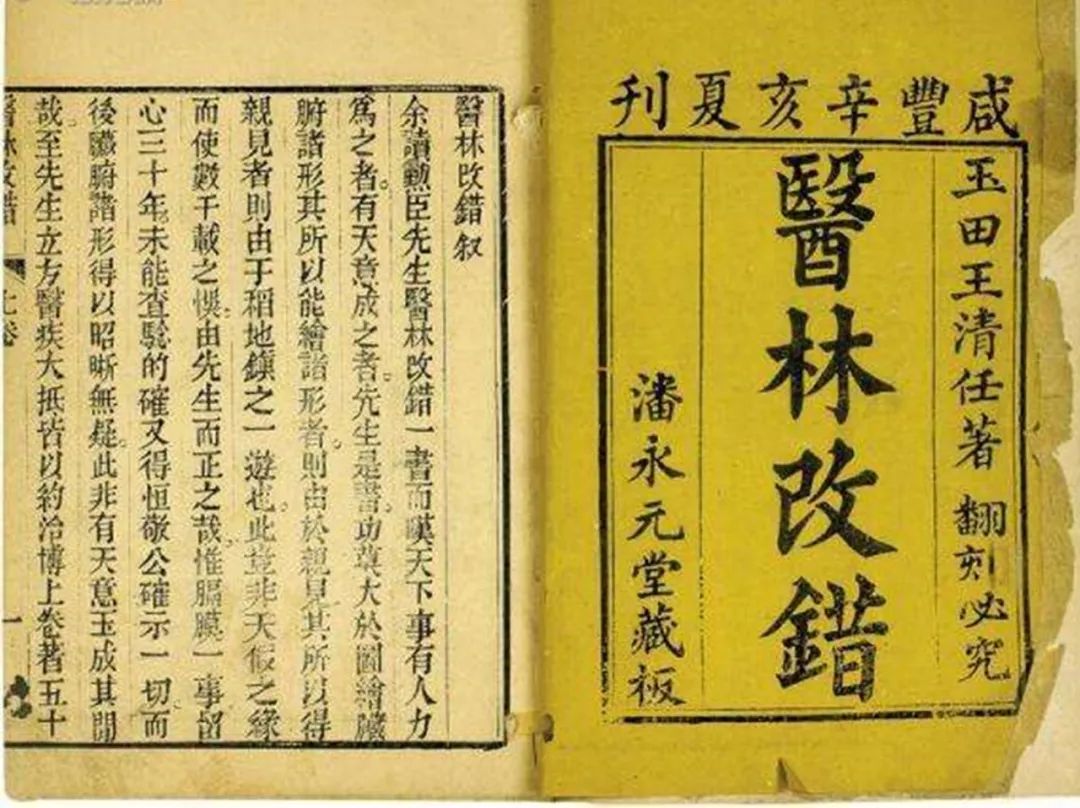 咸豐辛亥夏刊
玉田王清任著 翻刻必究
醫林改錯
潘永元堂藏板
醫林改錯叙
余讀勲臣先生醫林改錯一書而嘆天下事有人力
爲之者。有天意成之者。先生是書。功莫大於圖繪臟
腑諸形。其所以能繪諸形者。則由於親見。其所以得
親見者。則由于稻地鎮之一遊也。此豈非天假之緣。
而使數千載之悞。由先生而正之哉。惟膈膜一事。留
心三十年。未能查騐的確。又得恒敬公確示一切。而
後臟腑諸形。得以昭晰無疑。此非有天意玉成其間
哉。至先生立方醫疾。大抵皆以約治博。上卷著五十
醫林改錯
上卷
一